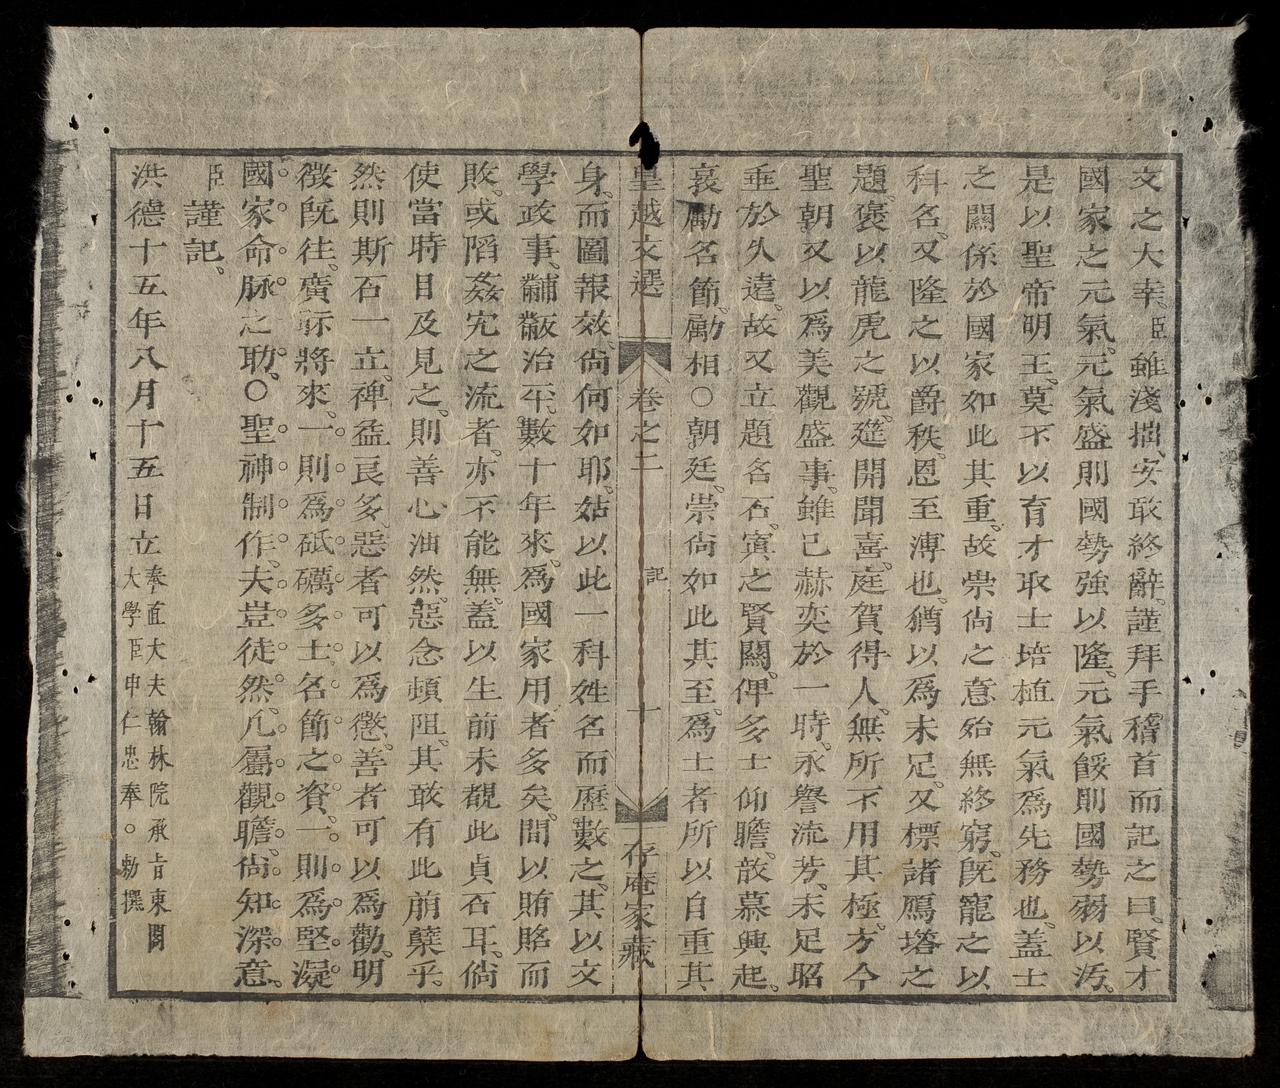 文之大幸。臣雖淺拙、安敢終辭。謹拜手稽首而記之曰。賢才
國家之元氣。元氣盛則國勢強以隆。元氣餒則國勢弱以汚。
是以聖帝明王。莫不以育才取士培植元氣爲先務也。蓋士
之關係於國家如此其重。故崇尙之意殆無終窮。旣寵之以
科名。又隆之以爵秩。恩至溥也。猶以爲未足。又標諸鴈塔之
題。褒以龍虎之號。筵開聞喜。庭賀得人。無所不用其極。方今
聖朝又以爲美觀盛事。雖已赫奕於一時。永譽流芳。未足昭
垂於久遠。故又立題名石。寘之賢關。俾多士仰瞻。敨慕興起。
哀勵名節。勵相○朝廷。崇尙如此其至。爲士者所以自重其
皇越文選 卷之二 記 十 存庵家藏
身。而圖報效。尙何如耶。姑以此一科姓名而歷數之。其以文
學政事。黼黻治平。數十年來。爲國家用者多矣。間以賄賂而
敗。或䧟姦宄之流者。亦不能無。蓋以生前未覩此貞石耳。倘
使當時目及見之。則善心油然。惡念頓阻。其敢有此前孽乎。
然則斯石一立。裨益良多。惡者可以爲懲。善者可以爲勸。明
徵旣往。廣示將來。一則爲砥礪多士名節之資。一則爲堅凝
國家命脉之助。○聖神制作。夫豈徒然。凡屬觀瞻。尙知深意。
臣謹記、
洪德十五年八月十五日立 奉直大夫翰林院承旨東閣
大學臣申仁忠奉○勅撰